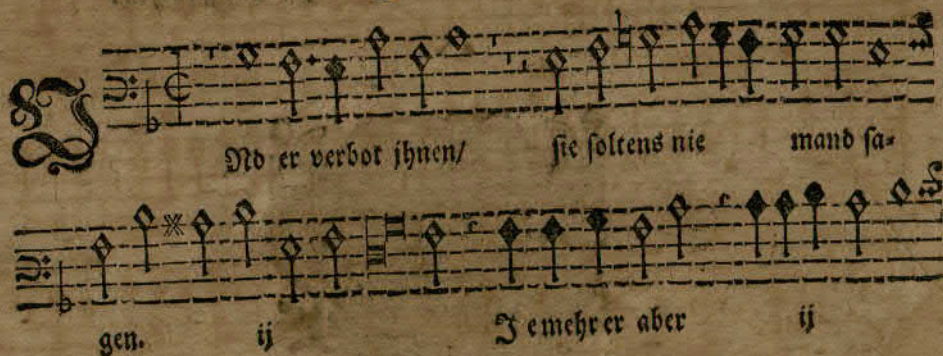 VNd er verbot jhnen/ sie soltens nie mand sa=
gen. ij Je mehr er aber ij